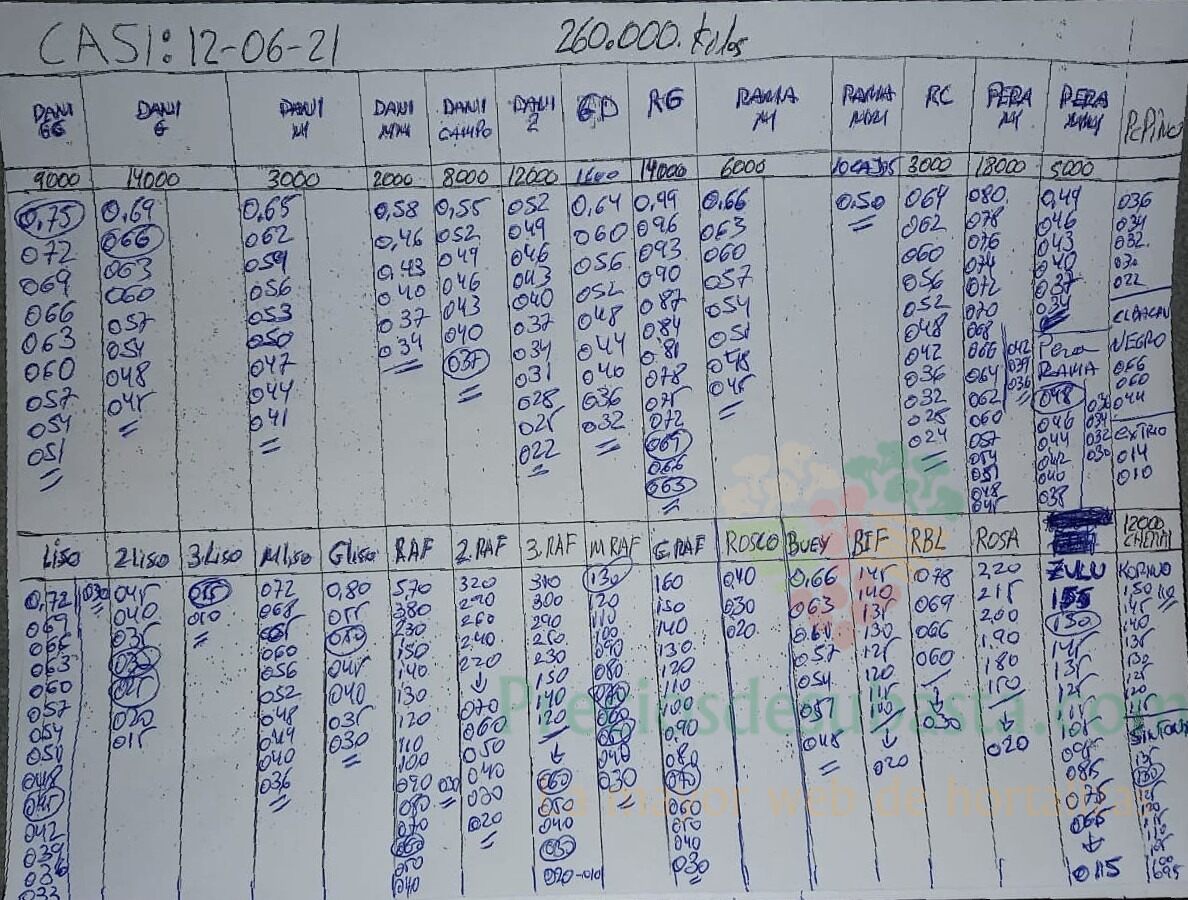 CASI: 12-06-21 260.000. Kilos
DANI GG DANI G DANI M DANI MM DANI CAMPO DANI 2 GD RG RAMA M RAMA MM RC PERA M PERA MM PEPINO
9000 14000 3000 2000 8000 12000 1600 14000 6000 10 CAJAS 3000 18000 5000
0,75 0,69 0,65 0,58 0,55 052 0,64 0,99 0,66 0,50 064 080 0,49 036
072 066 062 0,46 052 049 060 096 063 062 078 046 034
069 063 059 0,43 049 046 056 093 060 060 076 043 032
066 060 056 040 046 043 052 090 057 056 074 040 030
063 057 053 037 043 040 048 087 054 052 072 037 022
060 054 050 034 040 037 044 084 051 048 070 034
057 048 047 037 034 040 081 048 042 068
054 045 044 031 036 078 045 036 066 042 Pera RAMA NEGRO
051 041 028 032 075 032 064 039 048 066
025 072 028 062 036 046 036 060
022 069 024 060 044 034 044
066 057 042 032
063 054 040 030 014
051 038 010
048
045
LISO 2 LISO 3 LISO M LISO G LISO RAF 2.RAF 3.RAF M RAF G.RAF ROSCO BUEY BIF RBL ROSA ZULU 12000
0,72 030 045 015 072 0,80 5,70 320 310 130 160 040 0,66 145 078 220 155
069 040 010 068 055 380 290 300 120 150 030 063 140 069 215 150
066 035 065 050 230 260 290 110 140 020 060 135 066 200 145
063 030 060 045 150 240 260 100 130 057 130 060 1.90 135
060 025 056 040 140 220 230 090 120 054 125 ↓ 180 125
057 020 052 035 130 ↓ 150 080 110 051 120 030 150 115
054 015 048 030 120 070 140 070 100 048 ↓ ↓ 105
051 044 110 060 120 060 0,90 020 020 095
048 040 100 050 ↓ 040 080 085
045 036 090 030 040 060 030 070 075
042 080 030 050 060 065
039 070 020 040 050 ↓
036 060 030 040 015
033 050 020-010 030
040
Preciosdesubasta.com
La mayor web de hortalizas